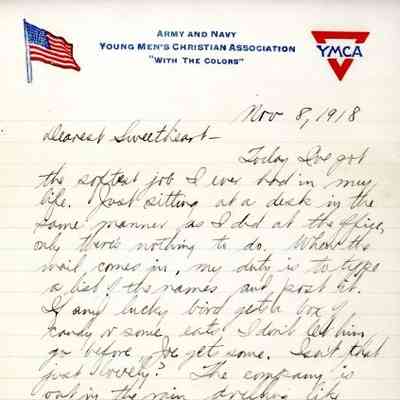 ARMY AND NAVY
YOUNG MEN'S CHRISTIAN ASSOCIATION
"WITH THE COLORS"
YMCA
Nov 8, 1918
Dearest Sweetheart—
Today I've got
the softest job I ever had in my
life. Just sitting at a desk in the
same manner as I did at the office,
only there's nothing to do. When the
mail comes in, my duty is to type
a list of the names and post it.
If any lucky bird gets a box of
candy or some eats I don't let him
go before I've get some. Isn't that
just lovely? The company is
out in the rain like